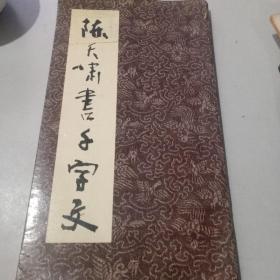 陈天啸书千字文